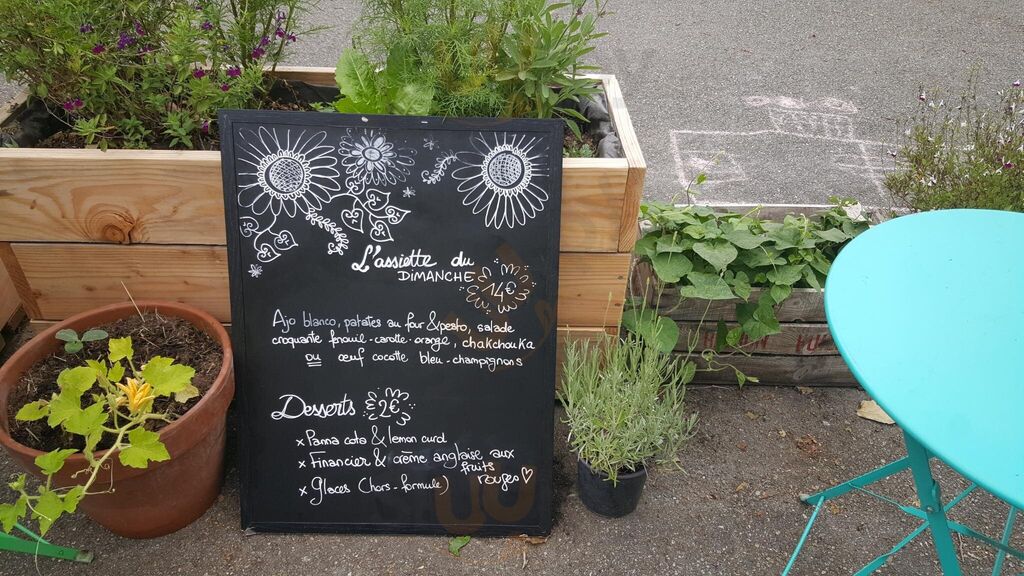 L'assiette du
DIMANCHE
14€
Ajo blanco, patates au four & pesto, salade
croquante fenouil-carotte-orange, chakchouka
ou œuf cocotte bleu-champignons
Desserts 2€
x Panna cota & lemon curd
x Financier & crème anglaise aux
fruits
rouges ♡
x Glaces (hors-formule)